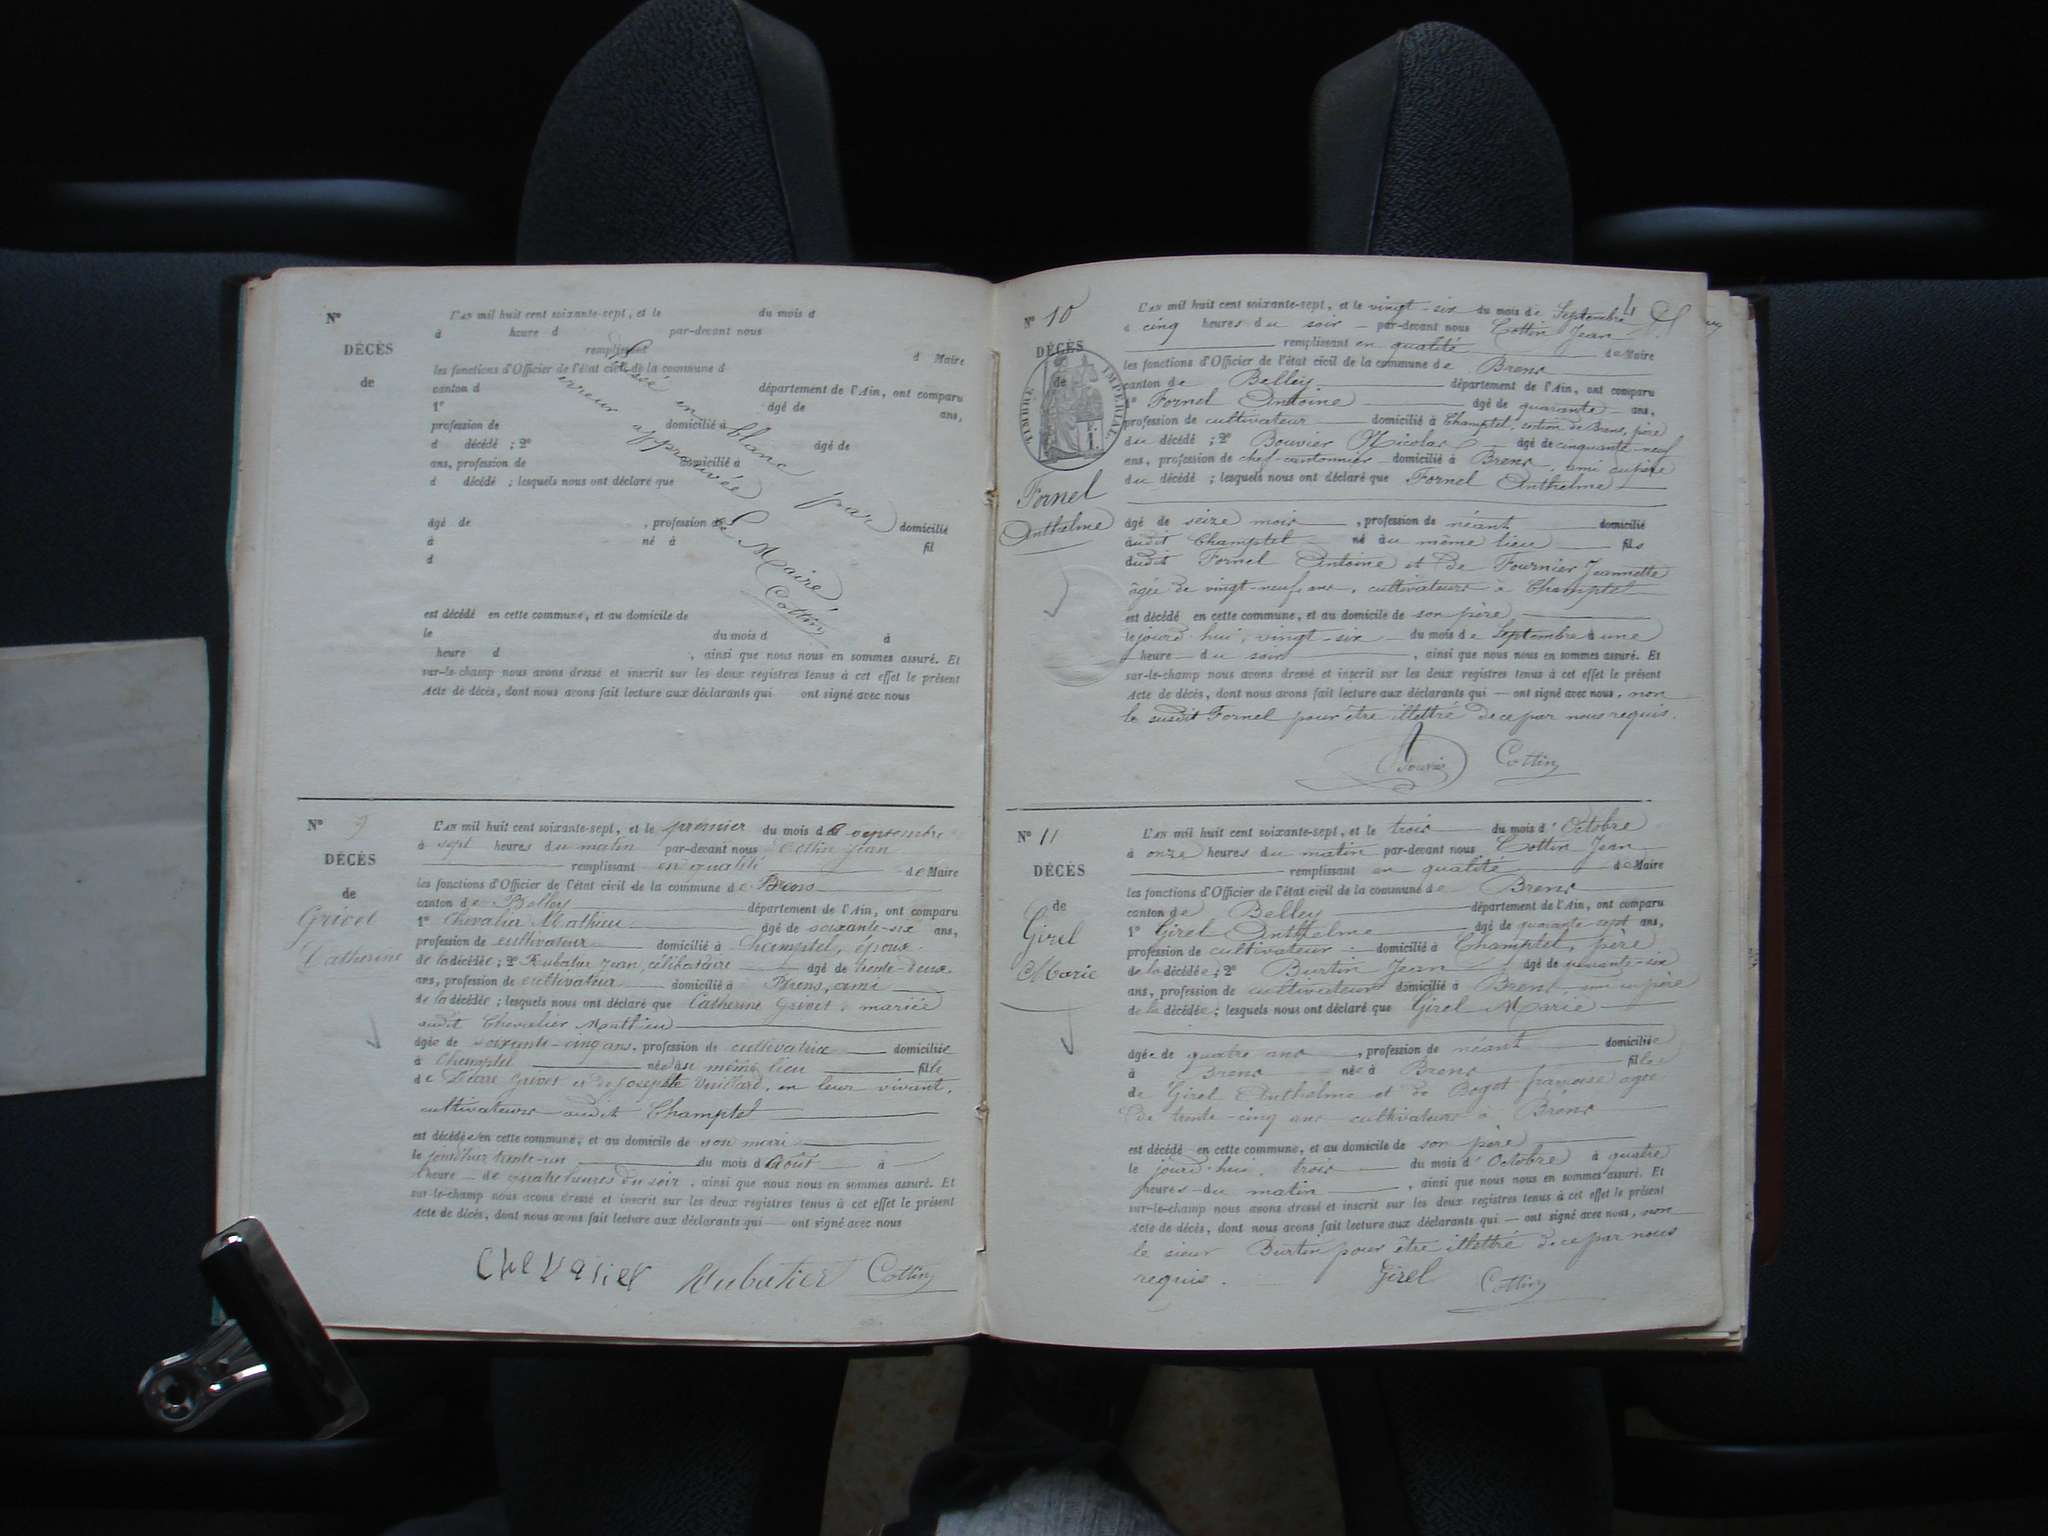 N°
DÉCÈS
de
L'AN mil huit cent soixante-sept, et le du mois d
à heure d par-devant nous
remplissant d Maire
les fonctions d'Officier de l'état civil de la commune d
canton d département de l'Ain, ont comparu
1° âgé de ans,
profession de domicilié à
d décédé ; 2° âgé de
ans, profession de domicilié à
d décédé ; lesquels nous ont déclaré que
âgé de , profession de domicilié
à né à fil
d
est décédé en cette commune, et au domicile de
le du mois d à
heure d , ainsi que nous nous en sommes assuré. Et
sur-le-champ nous avons dressé et inscrit sur les deux registres tenus à cet effet le présent
Acte de décès, dont nous avons fait lecture aux déclarants qui ont signé avec nous
laissée en blanc par
erreur approuvée
Le Maire
Cottin
N° 9
DÉCÈS
de
Grivet
Catherine
L'AN mil huit cent soixante-sept, et le premier du mois de septembre
à sept heures du matin par-devant nous Cottin Jean
remplissant en qualité de Maire
les fonctions d'Officier de l'état civil de la commune de Brens
canton de Belley département de l'Ain, ont comparu
1° Chevalier Mathieu âgé de soixante-six ans,
profession de cultivateur domicilié à Champtel, époux
de la décédée ; 2° Rubatier Jean, célibataire âgé de trente-deux
ans, profession de cultivateur domicilié à Brens, ami
de la décédée ; lesquels nous ont déclaré que Catherine Grivet, mariée
audit Chevalier Mathieu
âgée de soixante-cinq ans, profession de cultivatrice domiciliée
à Champtel née au même lieu fille
de Pierre Grivet et de Josephte Vuillard, en leur vivant,
cultivateurs audit Champtel
est décédée en cette commune, et au domicile de son mari
le jourd'hui trente-un du mois d'Août à
heure de quatre heures du soir, ainsi que nous nous en sommes assuré. Et
sur-le-champ nous avons dressé et inscrit sur les deux registres tenus à cet effet le présent
Acte de décès, dont nous avons fait lecture aux déclarants qui — ont signé avec nous
Chevalier Rubatier Cottin
N° 10
DÉCÈS
de
TIMBRE IMPÉRIAL
Fornel
Anthelme
L'AN mil huit cent soixante-sept, et le vingt-six du mois de Septembre
à cinq heures du soir par-devant nous Cottin Jean
remplissant en qualité de Maire
les fonctions d'Officier de l'état civil de la commune de Brens
canton de Belley département de l'Ain, ont comparu
1° Fornel Antoine âgé de quarante ans,
profession de cultivateur domicilié à Champtel, section de Brens, père
du décédé ; 2° Bouvier Nicolas âgé de cinquante-neuf
ans, profession de chef-cantonnier domicilié à Brens, ami du père
du décédé ; lesquels nous ont déclaré que Fornel Anthelme
âgé de seize mois, profession de néant domicilié
audit Champtel né au même lieu fils
dudit Fornel Antoine et de Fournier Jeannette
âgée de vingt-neuf ans, cultivateurs à Champtel
est décédé en cette commune, et au domicile de son père
le jourd'hui, vingt-six du mois de Septembre à une
heure du soir, ainsi que nous nous en sommes assuré. Et
sur-le-champ nous avons dressé et inscrit sur les deux registres tenus à cet effet le présent
Acte de décès, dont nous avons fait lecture aux déclarants qui — ont signé avec nous, non
le susdit Fornel pour être illettré de ce par nous requis.
Bouvier Cottin
N° 11
DÉCÈS
de
Girel
Marie
L'AN mil huit cent soixante-sept, et le trois du mois d'Octobre
à onze heures du matin par-devant nous Cottin Jean
remplissant en qualité de Maire
les fonctions d'Officier de l'état civil de la commune de Brens
canton de Belley département de l'Ain, ont comparu
1° Girel Anthelme âgé de quarante sept ans,
profession de cultivateur domicilié à Champtel, père
de la décédée ; 2° Burtin Jean âgé de
ans, profession de cultivateur domicilié à Brens, ami du père
de la décédée ; lesquels nous ont déclaré que Girel Marie
âgée de quatre ans, profession de néant domiciliée
à Brens née à Brens fille
de Girel Anthelme et de Bogot françoise agée
de trente-cinq ans cultivateurs à Brens
est décédé en cette commune, et au domicile de son père
le jourd'hui, trois du mois d'Octobre à quatre
heures du matin, ainsi que nous nous en sommes assuré. Et
sur-le-champ nous avons dressé et inscrit sur les deux registres tenus à cet effet le présent
Acte de décès, dont nous avons fait lecture aux déclarants qui — ont signé avec nous, non
le sieur Burtin pour être illettré de ce par nous
requis. Girel Cottin